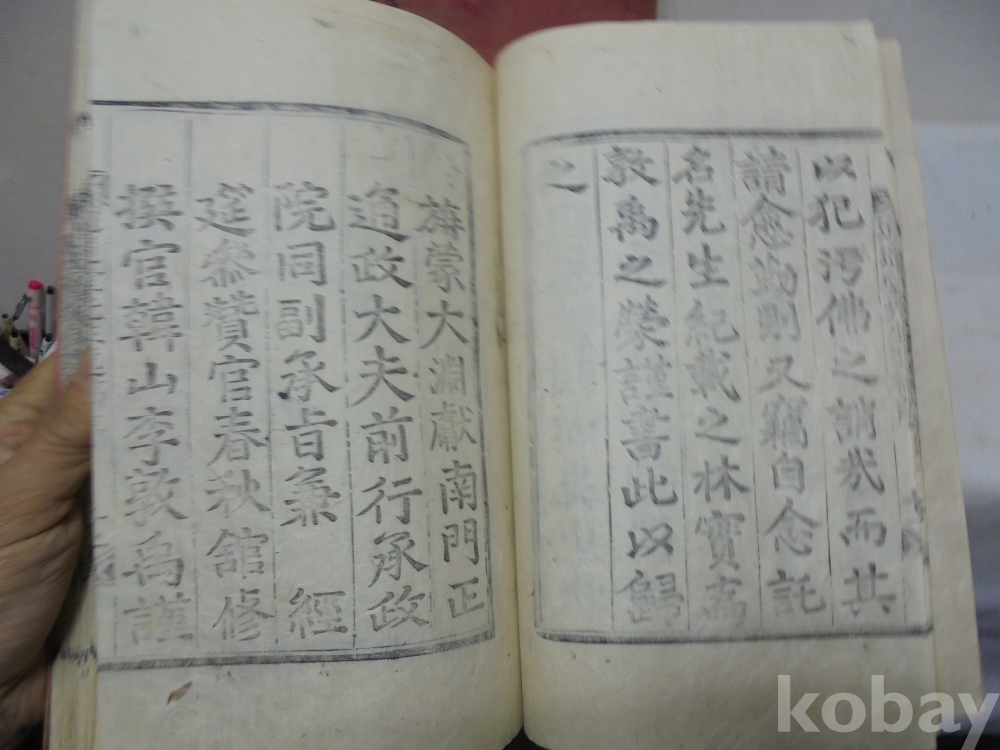 以犯汚佛之誚哉而其
請愈勤則又竊自念託
名先生紀載之林實爲
敦禹之榮謹書此以歸
之
旃蒙大淵獻南門正
通政大夫前行承政
院同副承旨兼 經
筵參贊官春秋館修
撰官韓山李敦禹謹
kobay